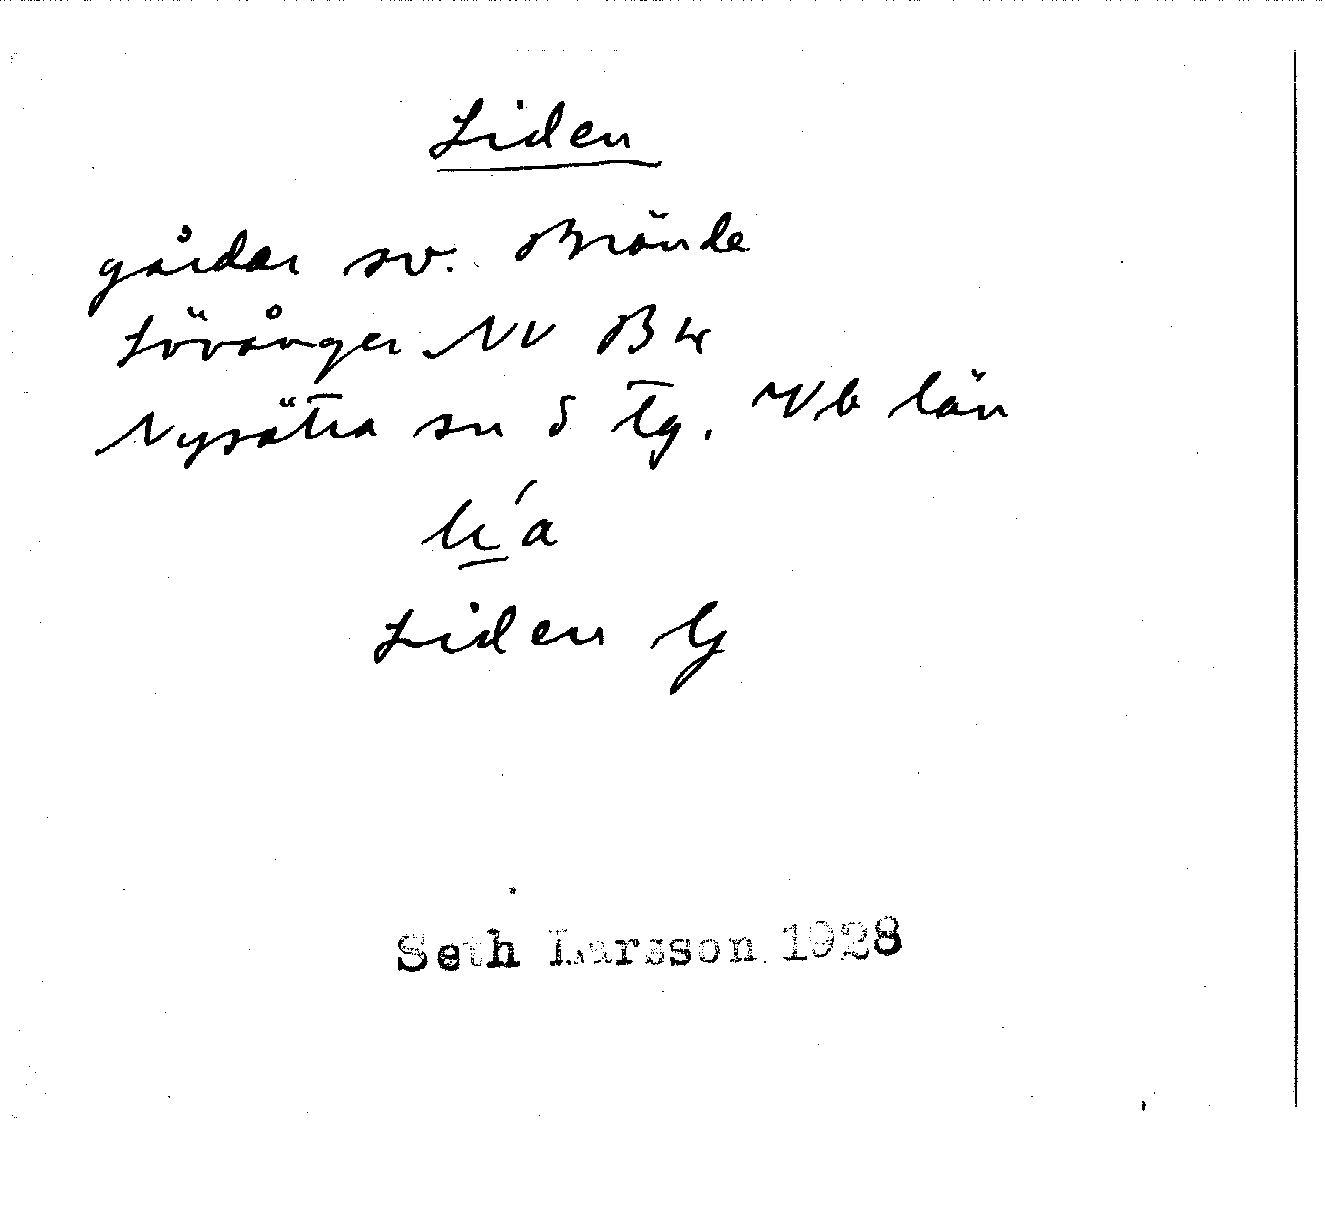 Liden
gårdar sv. Brände
Lövånger NV B4
Nysätra sn S tg. Vb län
li´a
Liden G
Seth Larsson 1928